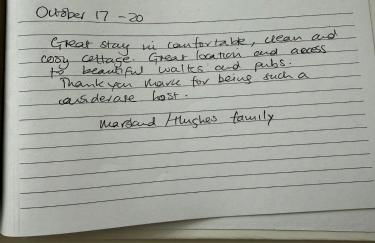 October 17 - 20
Great stay in comfortable, clean and
cosy cottage. Great location and access
to beautiful walks and pubs.
Thank you Mark for being such a
considerate host.
/Hughes family